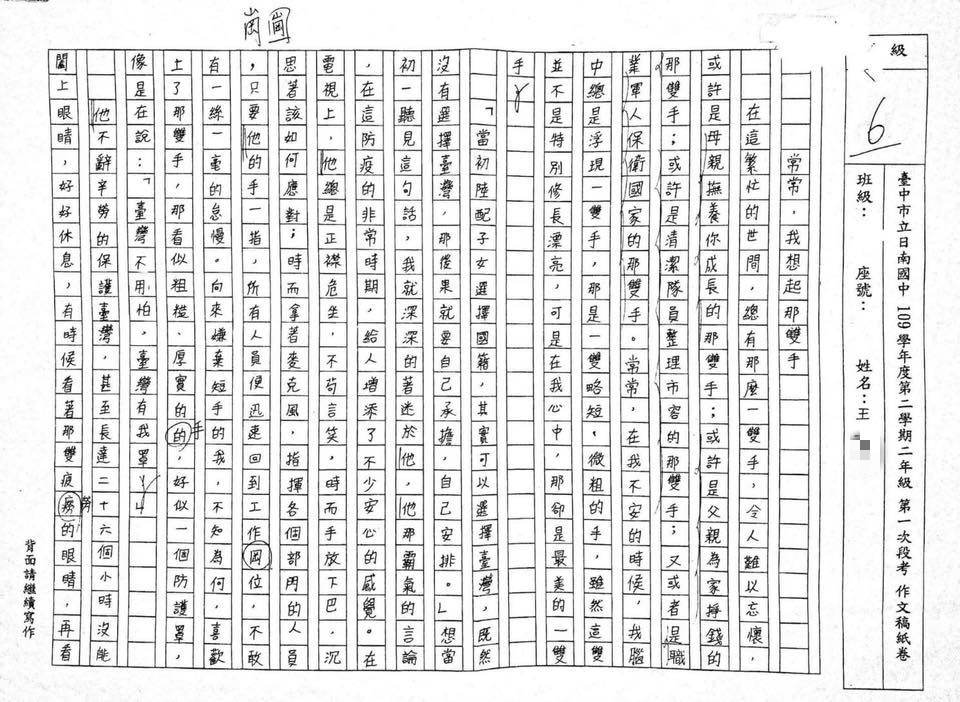 級
6
臺中市立日南國中 109 學年度第二學期二年級 第一次段考 作文稿紙卷
班級： 座號： 姓名：王
常常，我想起那雙手
在這繁忙的世間，總有那麼一雙手，令人難以忘懷，
或許是母親撫養你成長的那雙手；或許是父親為家掙錢的
那雙手；或許是清潔隊員整理市容的那雙手；又或者是職
業軍人保衛國家的那雙手。常常，在我不安的時候，我腦
中總是浮現一雙手，那是一雙略短，微粗的手，雖然這雙
並不是特別修長漂亮，可是在我心中，那卻是最美的一雙
手。
「當初陸配子女選擇國籍，其實可以選擇臺灣，既然
沒有選擇臺灣，那後果就要自己承擔，自己安排。」想當
初一聽見這句話，我就深深的著迷於他，他那霸氣的言論
，在這防疫的非常時期，給人增添了不少安心的感覺。在
電視上，他總是正襟危坐，不苟言笑，時而手放下巴，沉
思著該如何應對；時而拿著麥克風，指揮各個部門的人員
，只要他的手一指，所有人員便迅速回到工作岡位，不敢
崗
有一絲一毫的怠慢。向來嫌棄短手的我，不知為何，喜歡
上了那雙手，那看似粗糙、厚實的的，好似一個防護罩，
手
像是在說：「臺灣不用怕，臺灣有我罩！」
他不辭辛勞的保護臺灣，甚至長達二十六個小時沒能
闔上眼睛，好好休息，有時候看著那雙疲癆的眼睛，再看
勞
背面請繼續寫作